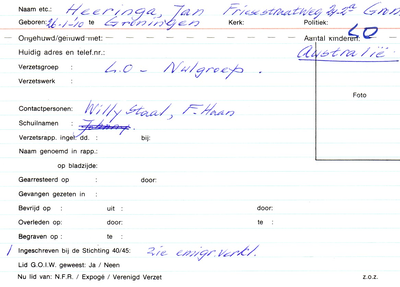 Naam etc.: Heeringa, Jan Friesestraatweg
Geboren: 26-1-10 te Groningen Kerk: Politiek:
LO
Ongehuwd/gehuwd met: Aantal kinderen:
Huidig adres en telef.nr.: Australië.
Verzetsgroep : L.O - Nulgroep.
Verzetswerk :
Foto
Contactpersonen: Willy Staal, F. Haan
Schuilnamen : Johnny
Verzetsrapp. ingel. dd. : bij:
Naam genoemd in rapp.:
op bladzijde:
Gearresteerd op : door:
Gevangen gezeten in :
Bevrijd op : uit : door:
Overleden op: door: te :
Begraven op : te :
Ingeschreven bij de Stichting 40/45: zie emigr. verkl.
Lid G.O.I.W. geweest: Ja / Neen
Nu lid van: N.F.R. / Expogé / Verenigd Verzet z.o.z.